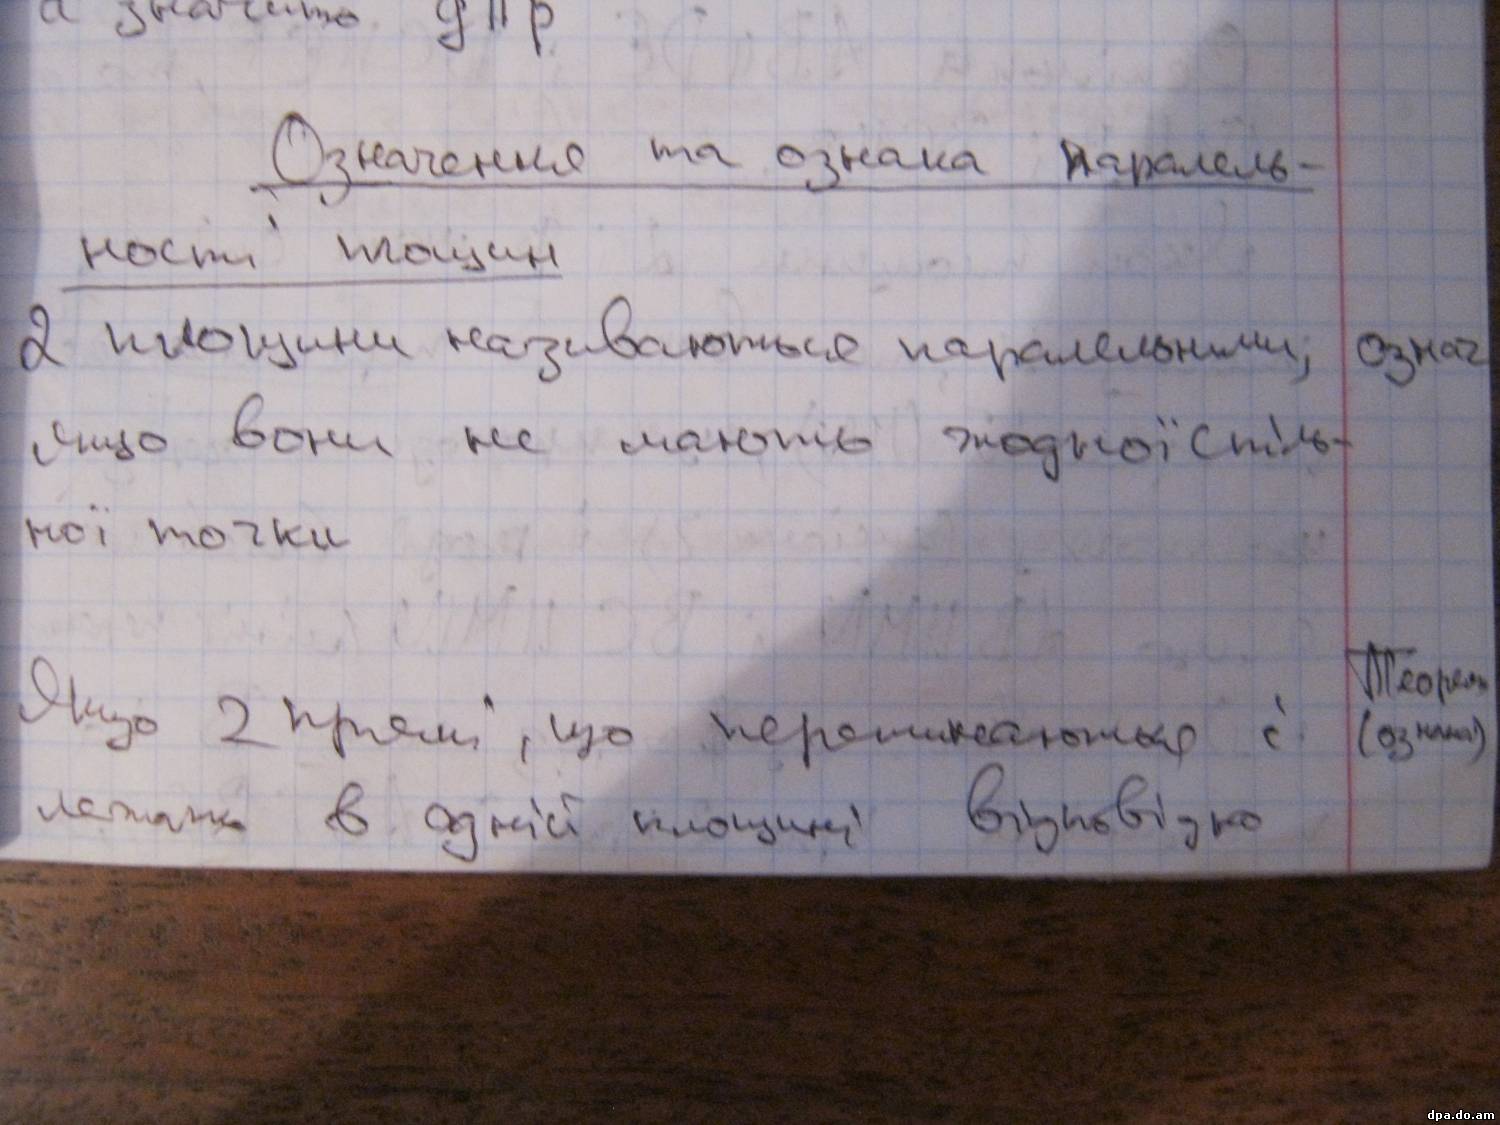 а значить g || p
Означення та ознака паралель-
ності площин
2 площини називаються паралельними, означ
якщо вони не мають жодної спіль-
ної точки
Теорем
Якщо 2 прямі, що перетинаються є (ознака)
лежать в одній площині відповідно
dpa.do.am